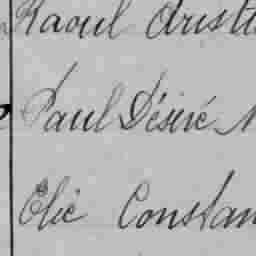 Raoul Arist
Paul Désiré
Elie Constan